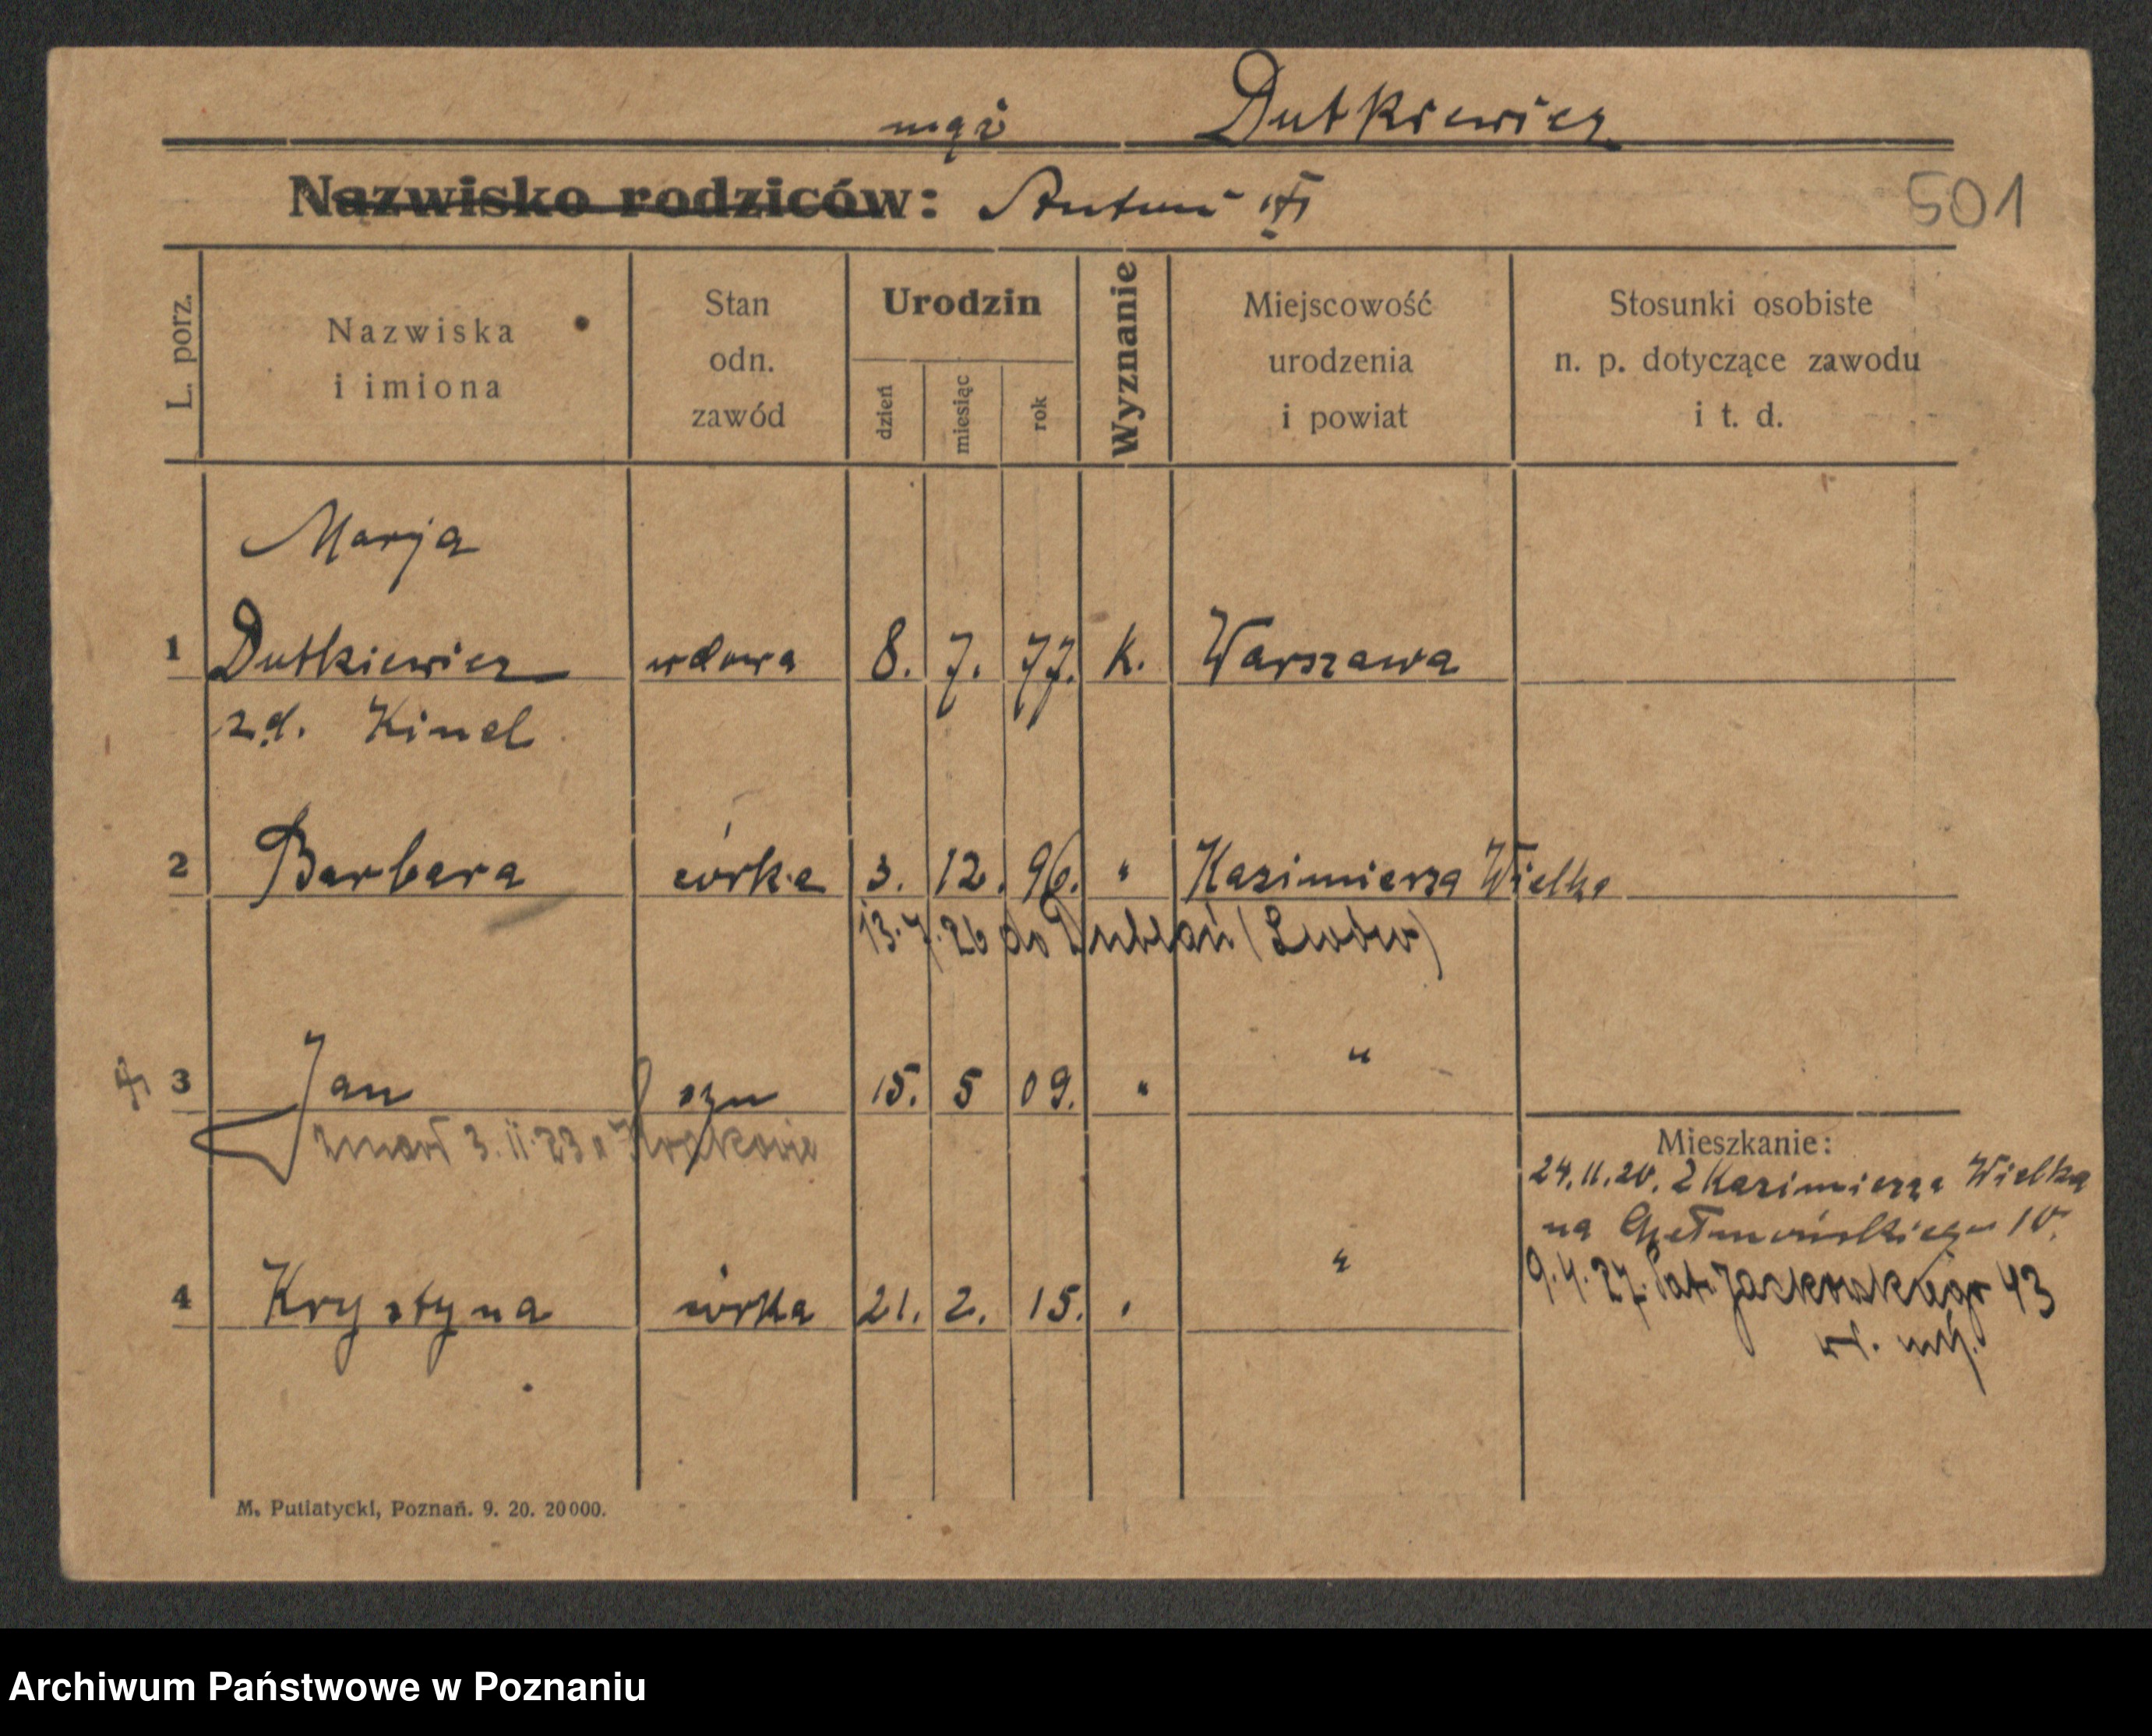 mąż Dutkiewicz
Nazwisko rodziców: Antoni
501
L. porz.
Nazwiska
i imiona
Stan
odn.
zawód
Urodzin
dzień
miesiąc
rok
Wyznanie
Miejscowość
urodzenia
i powiat
Stosunki osobiste
n. p. dotyczące zawodu
i t. d.
Marja
1 Dutkiewicz wdowa 8. 7. 77. k. Warszawa
z d. Kinel
2 Barbara córka 3. 12. 96. " Kazimierza Wielka
13.7.26 do Dublan (Lwów)
"
3 Jan syn 15. 5 09. "
zmarł 3.11.23 w Krakowie
Mieszkanie:
24.11.20. z Kazimierza Wielka
na 10.
9.4.27. Jackowskiego 43
"
4 Krystyna córka 21. 2. 15. "
M. Putiatycki, Poznań. 9. 20. 20000.
Archiwum Państwowe w Poznaniu